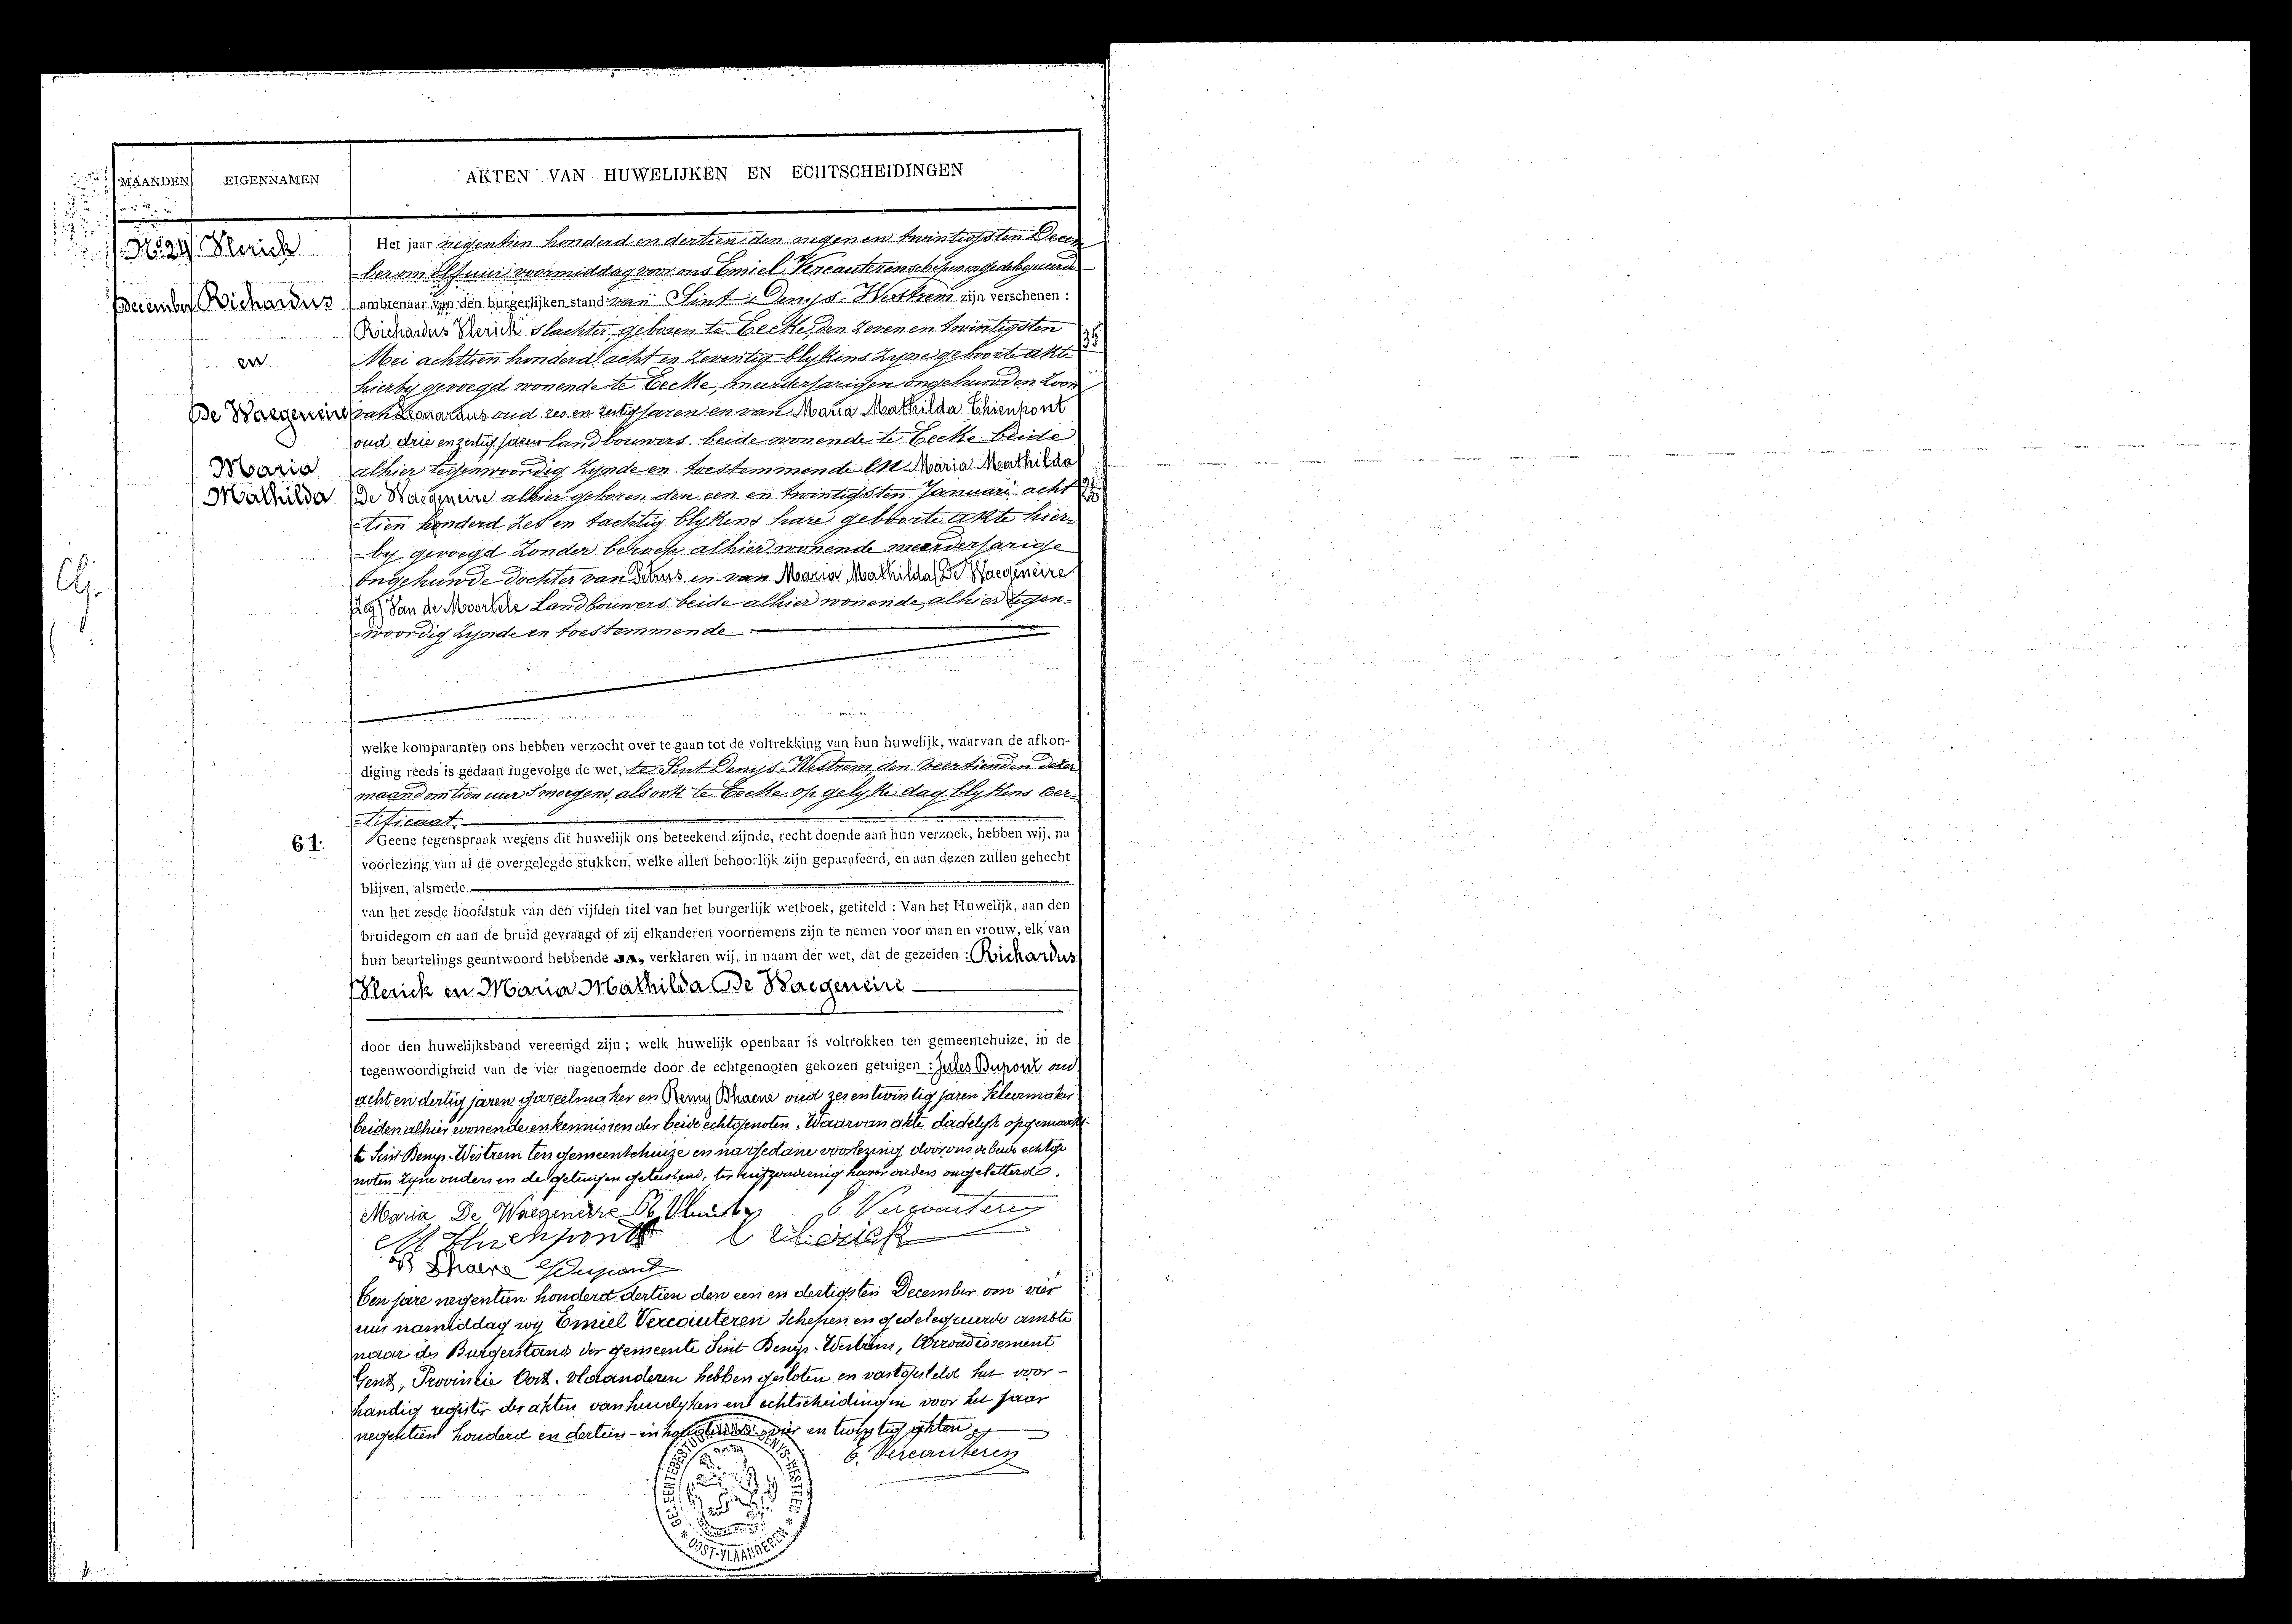 MAANDEN
EIGENNAMEN
AKTEN VAN HUWELIJKEN EN ECHTSCHEIDINGEN
No 24
December
Vlerick
Richardus
en
De Waegeneire
Maria
Mathilda
Het jaar negentien honderd en dertien den negen en twintigsten Decem
ber om elf uur voormiddag voor ons Emiel Vercauteren schepen en gedelegueerde
ambtenaar van den burgerlijken stand van Sint Denys-Westrem zijn verschenen :
Richardus Vlerick slachter, geboren te Eecke, den zeven en twintigsten
35
Mei achttien honderd acht en zeventig blykens zyne geboorte akte
hierby gevoegd wonende te Eecke, meerderjarigen ongehuwden zoon
van Leonardus oud zes en zestig jaren en van Maria Mathilda Thienpont
oud drie en zestig jaren landbouwers beide wonende te Eecke beide
alhier tegenwoordig zynde en toestemmende en Maria Mathilda
De Waegeneire alhier geboren den een en twintigsten Januari acht
-tien honderd zes en tachtig blykens hare geboorte akte hier-
-by gevoegd zonder beroep alhier wonende meerderjarige
ongehuwde dochter van Petrus en van Maria Mathilda De Waegeneire
Van de Moortele Landbouwers beide alhier wonende, alhier tegen-
-woordig zynde en toestemmende
welke komparanten ons hebben verzocht over te gaan tot de voltrekking van hun huwelijk, waarvan de afkon-
diging reeds is gedaan ingevolge de wet, te Sint Denys-Westrem, den veertienden dezer
maand om tien uur s'morgens, alsook te Eecke op gelyke dag blykens cer-
-tificaat.
61.
Geene tegenspraak wegens dit huwelijk ons beteekend zijnde, recht doende aan hun verzoek, hebben wij, na
voorlezing van al de overgelegde stukken, welke allen behoorlijk zijn geparafeerd, en aan dezen zullen gehecht
blijven, alsmede
van het zesde hoofdstuk van den vijfden titel van het burgerlijk wetboek, getiteld : Van het Huwelijk, aan den
bruidegom en aan de bruid gevraagd of zij elkanderen voornemens zijn te nemen voor man en vrouw, elk van
hun beurtelings geantwoord hebbende JA, verklaren wij, in naam der wet, dat de gezeiden : Richardus
Vlerick en Maria Mathilda De Waegeneire
door den huwelijksband vereenigd zijn ; welk huwelijk openbaar is voltrokken ten gemeentehuize, in de
tegenwoordigheid van de vier nagenoemde door de echtgenooten gekozen getuigen : Jules Dupont oud
acht en dertig jaren gareelmaker en Remy Dhaene oud zes en twintig jaren kleermaker
beiden alhier wonende en kennissen der beide echtgenoten. Waarvan akte dadelyk opgemaakt
te Sint-Denys-Westrem ten gemeentehuize en na gedane voorlezing door ons de beide echtge
noten zyne ouders en de getuigen geteekend, harer ouders ongeletterd.
Maria De Waegeneire R. Vlerick E Vercauteren
M Thienpont L Vlerick
R Dhaene J Dupont
Ten jare negentien honderd dertien den een en dertigsten December om vier
uur namiddag wy Emiel Vercauteren Schepen en gedelegueerde ambte
naar des Burgerstands der gemeente Sint Denys-Westrem, Arrondissement
Gent, Provincie Oost-Vlaanderen hebben gesloten en vastgesteld het voor-
handig register der akten van huwelyken en echtscheidingen voor het jaar
negentien honderd en dertien - inhoudende vier en twintig akten.
E. Vercauteren
GEMEENTEBESTUUR DENYS-WESTREM
OOST-VLAANDEREN